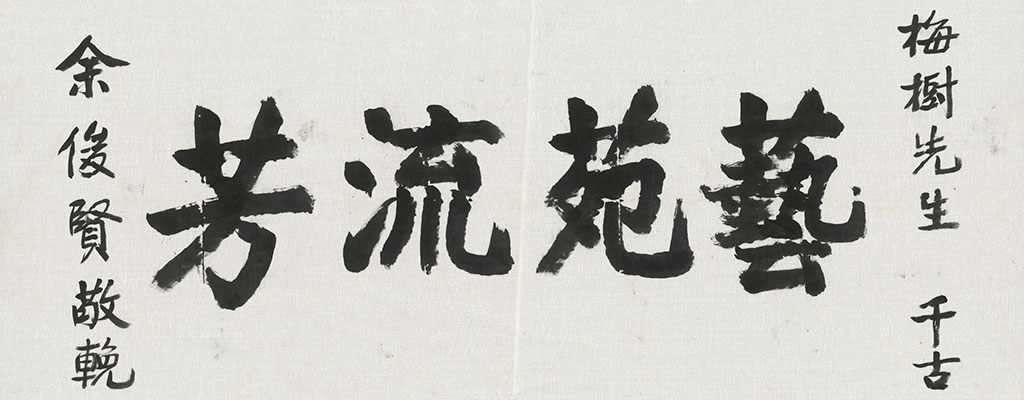 梅樹先生 千古
藝苑流芳
余俊賢敬輓